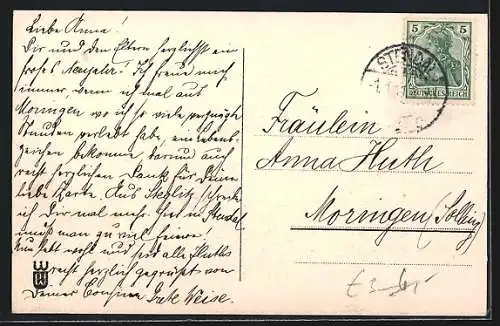 Liebe Anna!
Dir und den Eltern herzlichst ein
frohes Neujahr! Ich freue mich
immer, wenn ich mal aus
Moringen wo ich so viele vergnügte
Stunden verlebt habe, ein Lebens-
zeichen bekomme, darum auch
recht herzlichen Dank für Deine
liebe Karte. Aus Steglitz schreibe
ich Dir mal mehr. Hier in Stendal
muß man zu viel feiern.
Nun lebt wohl und seid alle Huths
recht herzlich gegrüßt von
Deiner Cousine Grete Weise.
Fräulein
Anna Huth
Moringen (Solling)
5 5
DEUTSCHES REICH
STENDAL